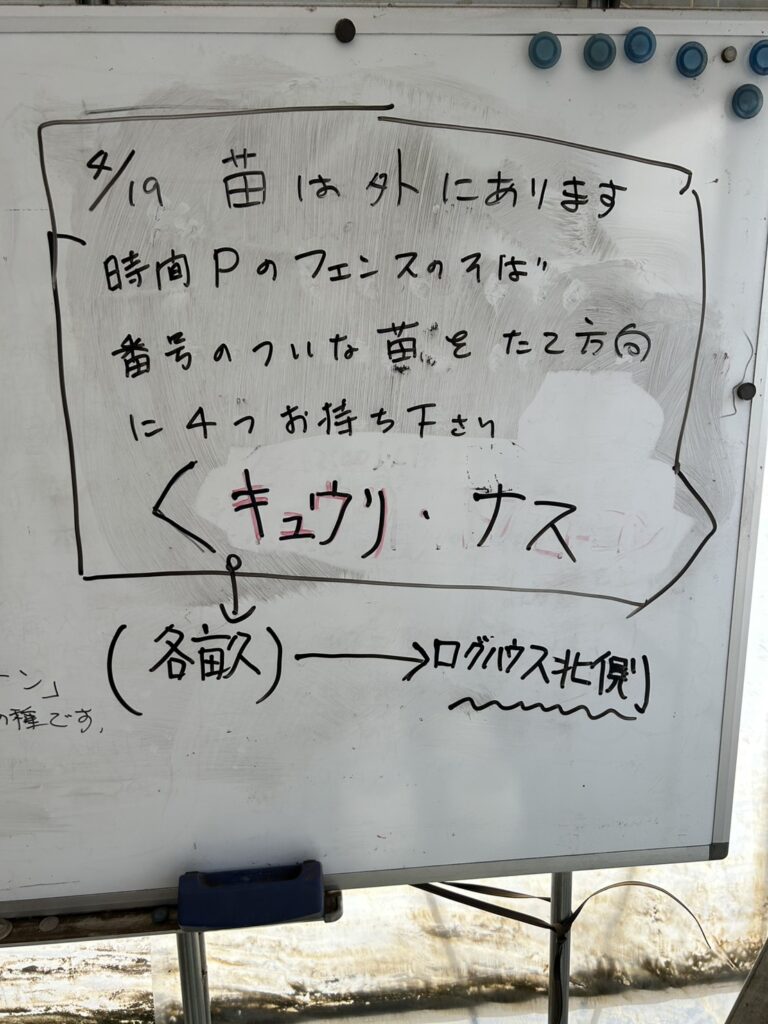 4/19 苗は外にあります
時間Pのフェンスのそば
番号のついた苗をたて方向
に4つお持ち下さい
キュウリ・ナス
(各畝)→ログハウス北側
ーン」
の種です。